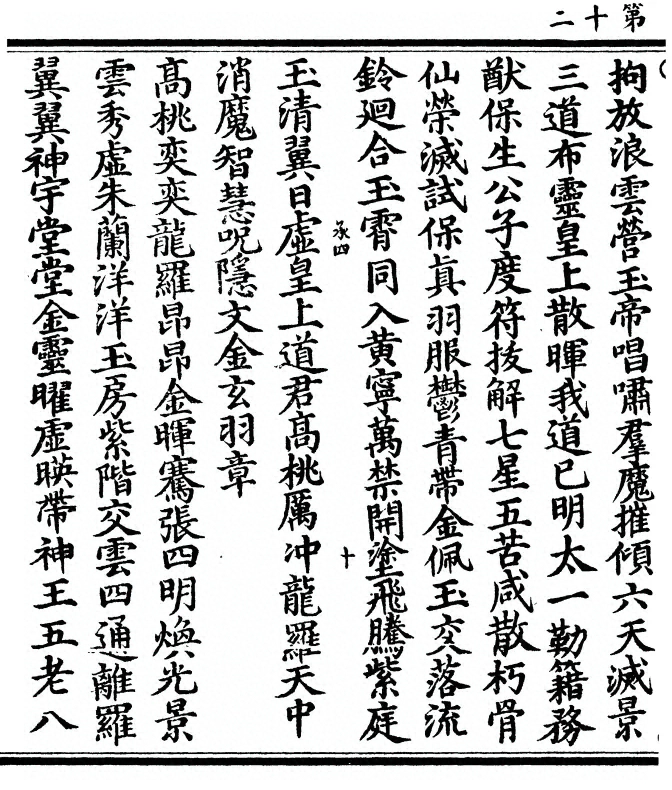 第十二
拘放浪雲營玉帝唱嘯羣魔摧傾六天滅景
三道布靈皇上散暉我道已明太一勒籍務
猷保生公子度符拔解七星五苦咸散朽骨
仙榮滅試保眞羽服鬱青帶金佩玉交落流
鈴廻合玉霄同入黃寧萬禁開塗飛騰紫庭
承四
十
玉清翼日虛皇上道君高桃厲冲龍羅天中
消魔智慧呪隱文金玄羽章
高桃奕奕龍羅昂昂金暉騫張四明煥光景
雲秀虛朱蘭洋洋玉房紫階交雲四通離羅
翼翼神宇堂堂金靈曜虛暎帶神王五老八